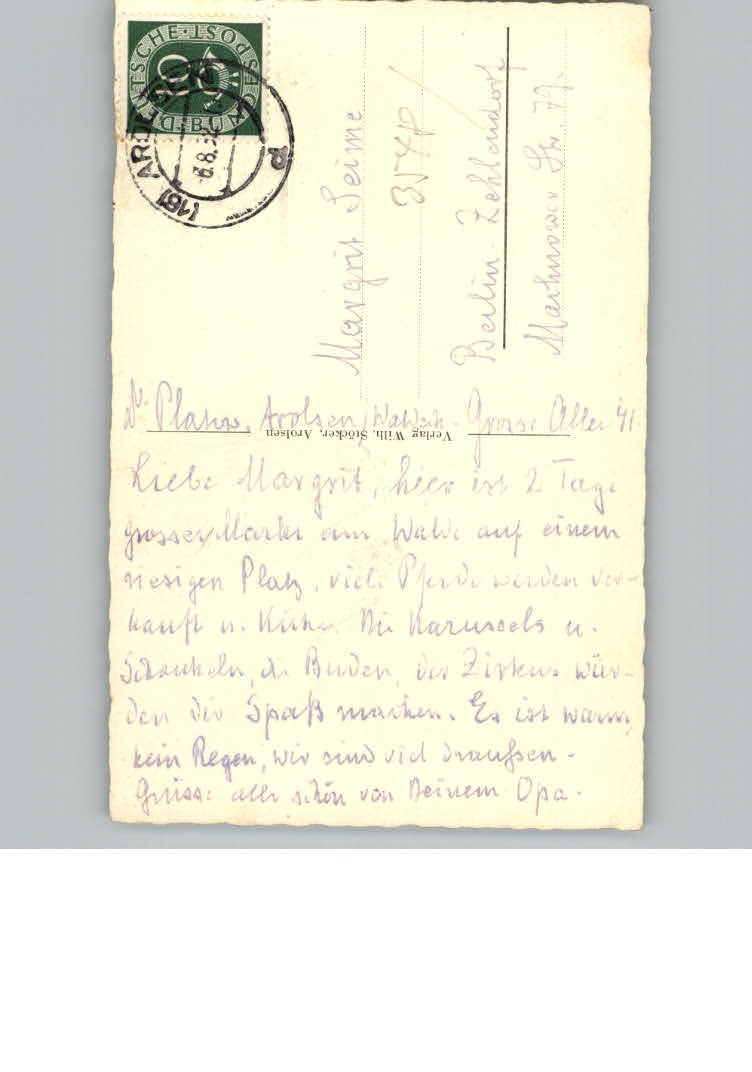 DEUTSCHE BUNDESPOST
(16) AROLSEN
Margrit Seime
Berlin-Zehlendorf
Machnower Str. 79.
Verlag Wilh. Stöcker, Arolsen
Arolsen/Waldeck - Grosse Allee 41
Liebe Margrit, hier ist 2 Tage
grosser Markt am Walde auf einem
riesigen Platz, viele Pferde werden ver-
kauft u. Kühe. Die Karussels u.
Schaukeln, die Buden, der Zirkus wür-
den dir Spaß machen. Es ist warm,
kein Regen, wir sind viel draussen -
Grüsse alle schön von Deinem Opa.